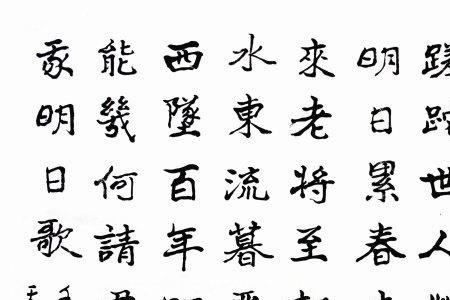 蹉跎世人
明日累春
來老將至
水東流暮
西墜百年
能幾何請君
我明日歌